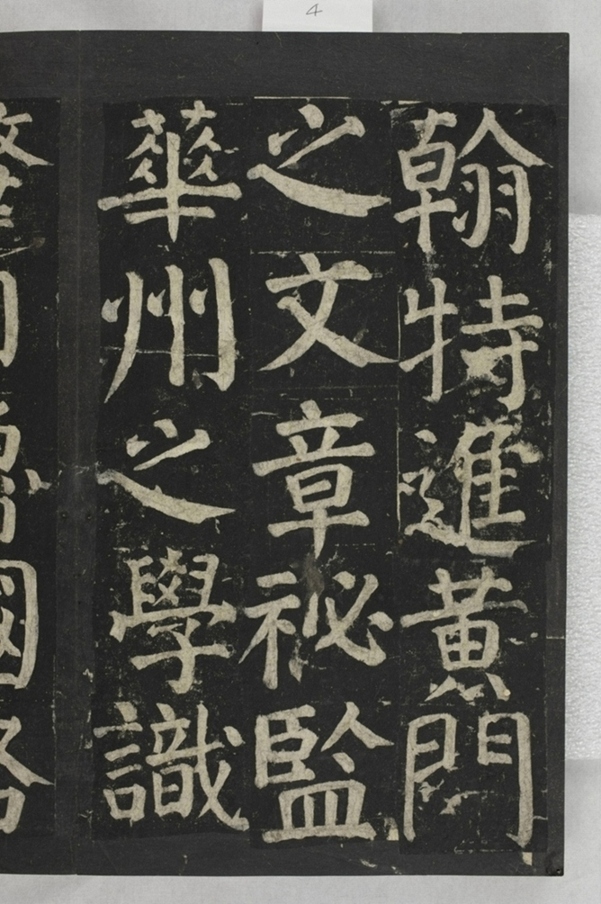 4
翰特進黃門
之文章祕監
華州之學識